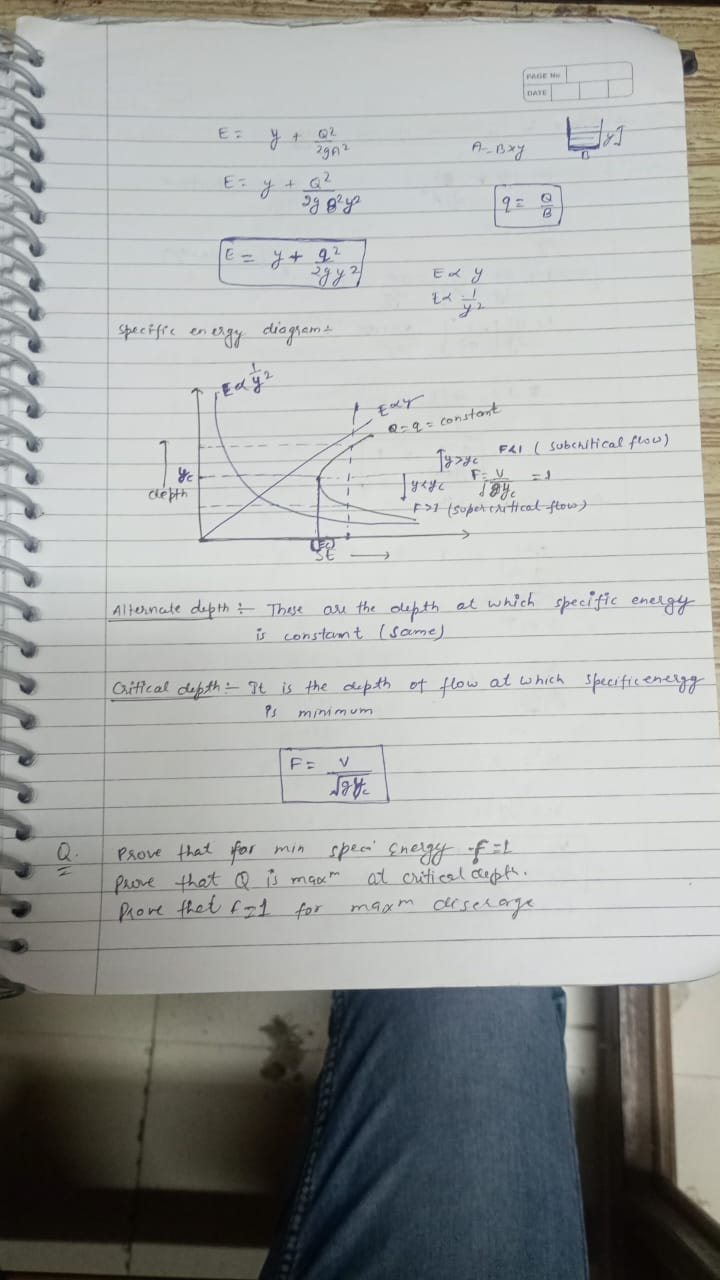 PAGE No
DATE
E = y + Q²/2gA²
A = B×y
y
B
E = y + Q²/2g B²y²
q = Q/B
E = y + q²/2gy²
E ∝ y
E ∝ 1/y²
Specific energy diagram:-
E ∝ 1/y²
E∝y
Q = q = constant
y>yc F<1 (subcritical flow)
yc
y<yc F = V/√gyc = 1
depth
F>1 (supercritical flow)
(Ec)
SE
Alternate depth :- These are the depth at which specific energy
is constant (same)
Critical depth :- It is the depth of flow at which specific energy
is minimum
F = V/√gyc
Q. Prove that for min speci energy F=1
Prove that Q is maxm at critical depth.
Prove that F=1 for maxm discharge